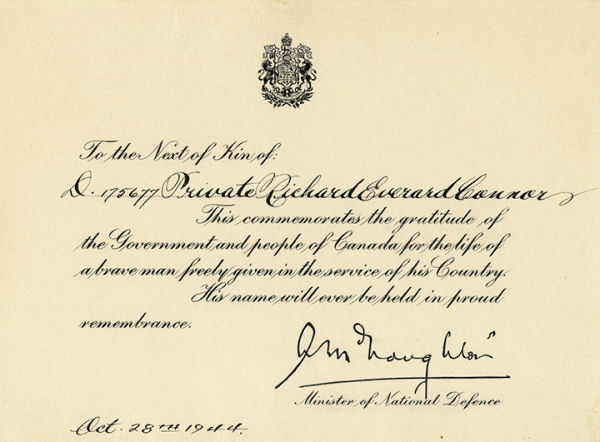 To the Next of Kin of:
D. 175677 Private Richard Everard Connor
This commemorates the gratitude of
the Government and people of Canada for the life of
a brave man freely given in the service of his Country.
His name will ever be held in proud
remembrance.
Minister of National Defence
Oct. 28TH 1944.